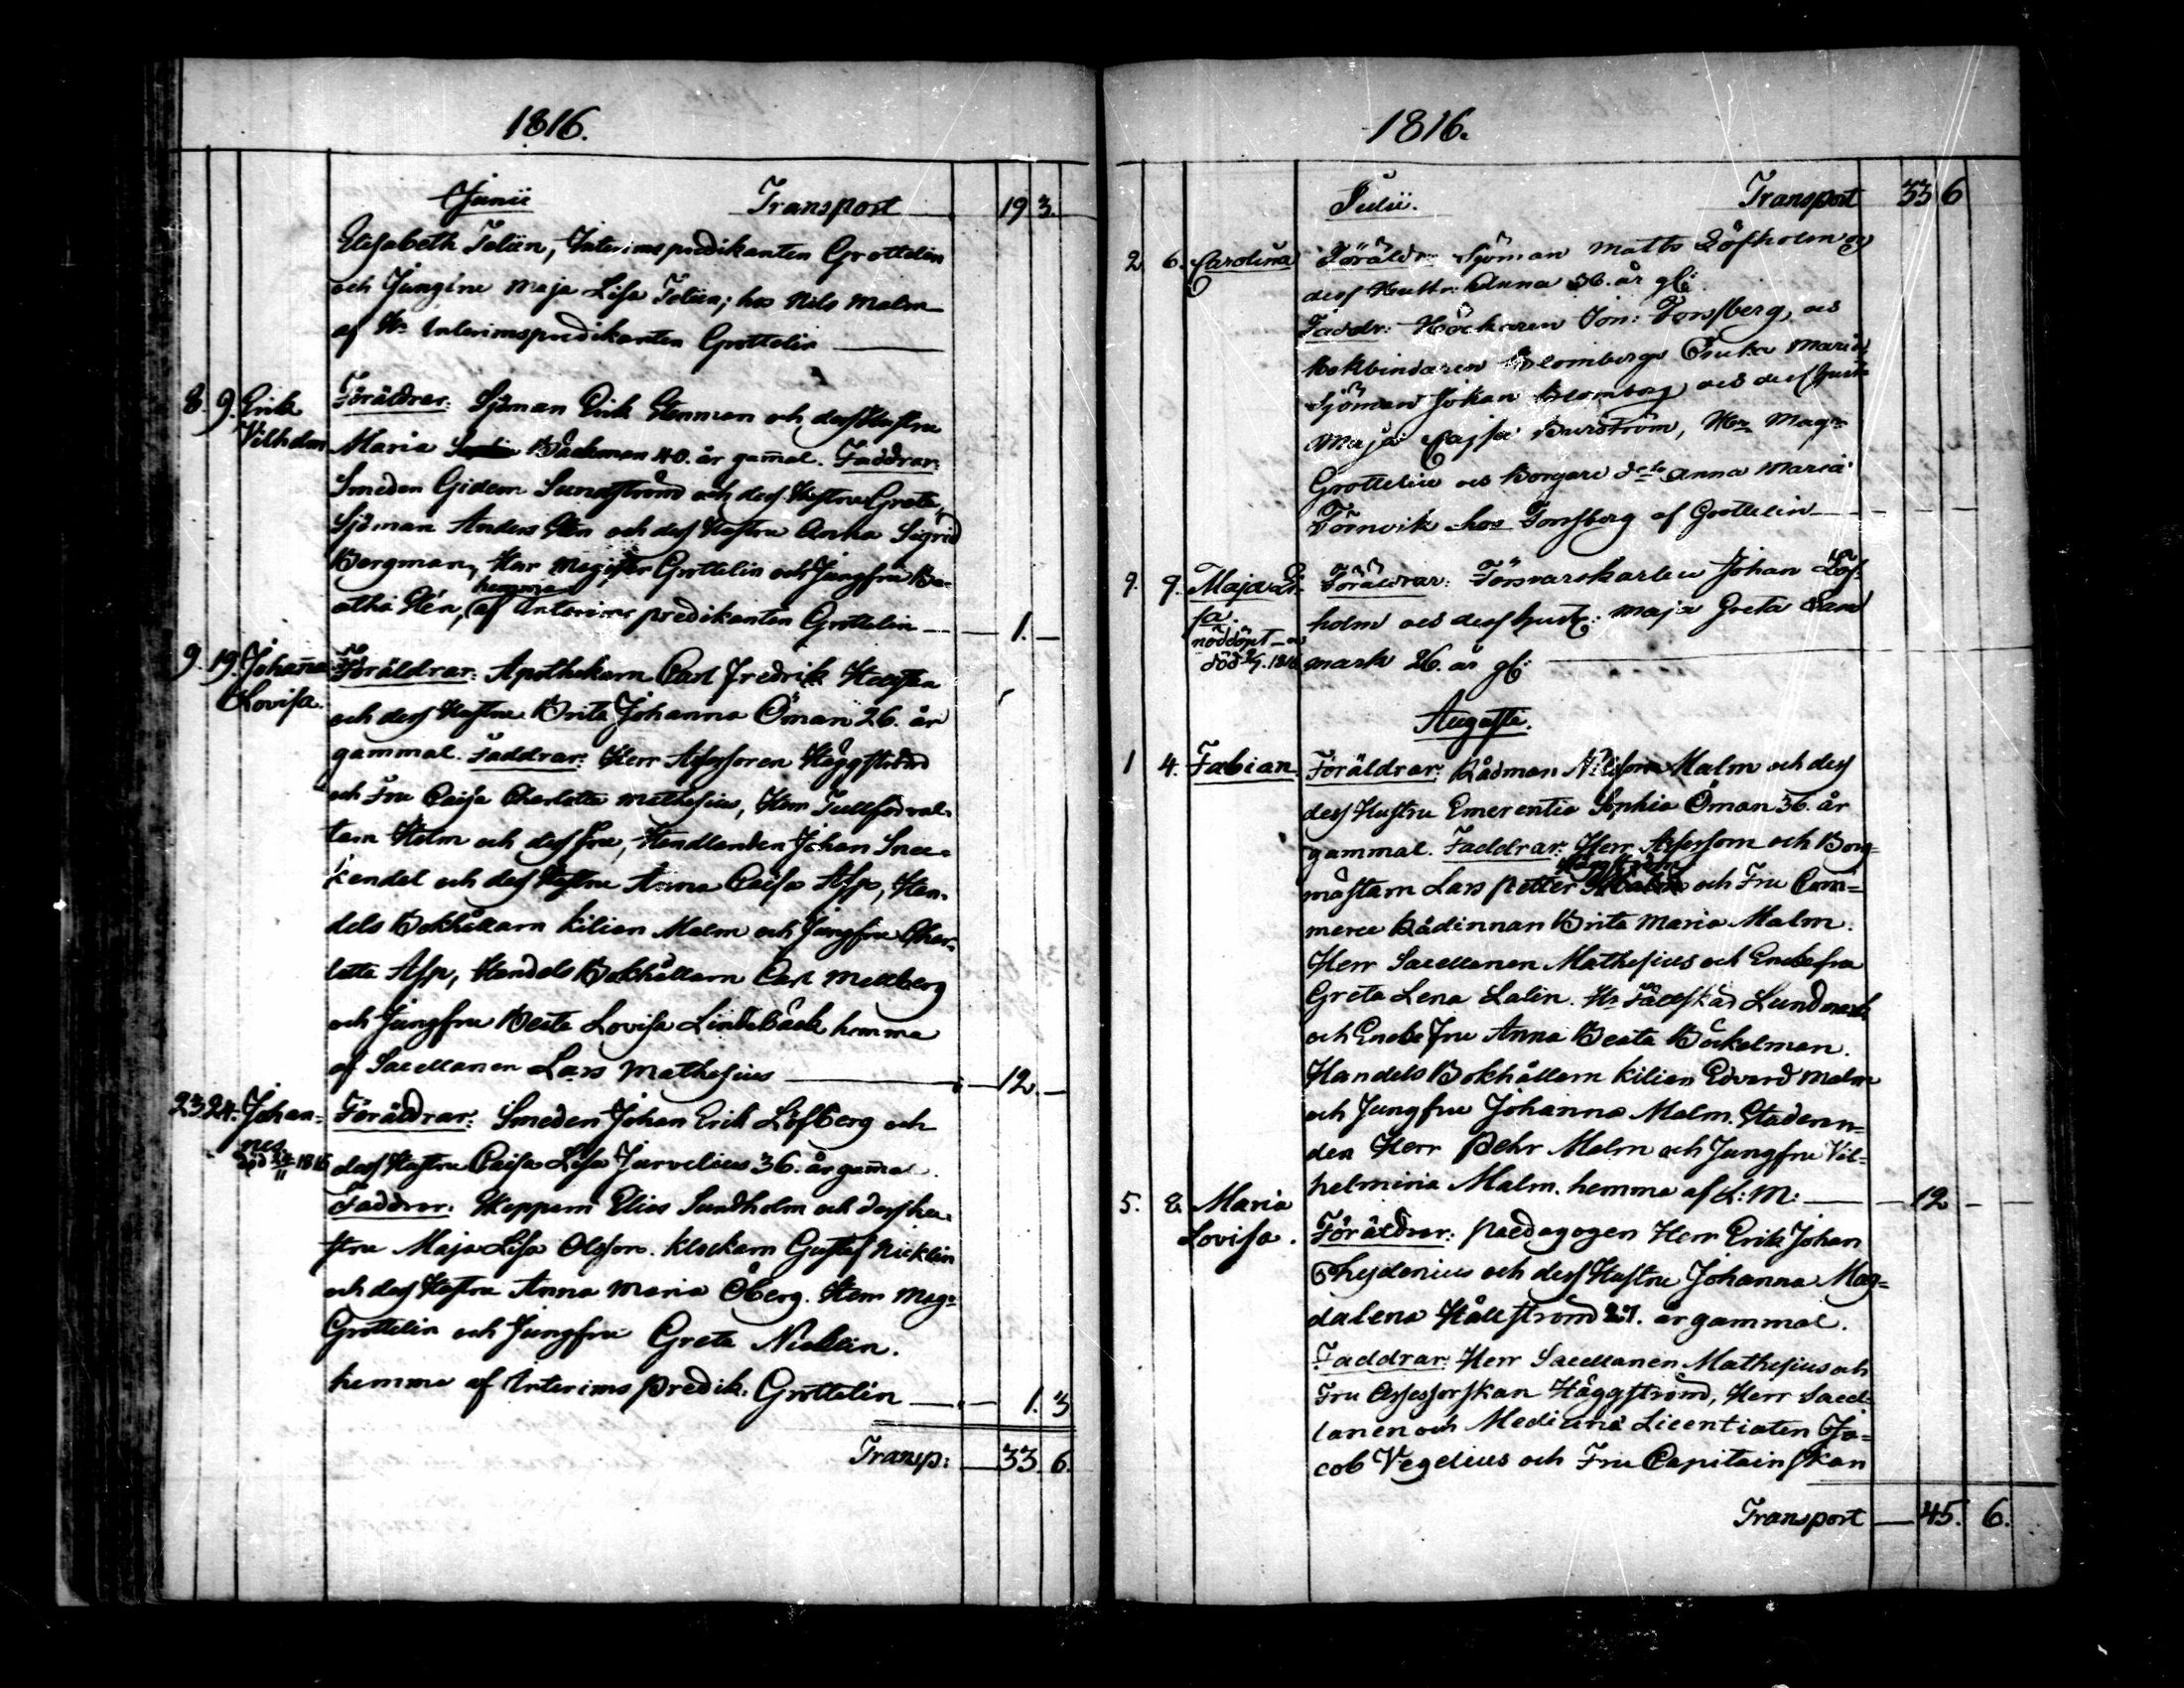 1816.
Junii Transport 19 3.
Elisabeth Tolien, Interimspredikanten Grottelin
och Jungfru Maja Lisa Tolien; hos Nils Malm
af Hr Interimspredikanten Grottelin
8. 9. Erik Föräldrar: Sjöman Erik Stenman och dess Hustru
Vilhelm Maria Backman 40. år gam̄al. Faddrar:
Smeden Gideon Sundström och dess Hustru Greta,
Sjöman Anders Sten och dess Hustru Anna Sigrid
Bergman, Herr Magister Grottelin och Jungfru Be-
hemma
atha Stén, af Interims predikanten Grottelin 1.
9. 19. Johan̄a Föräldrar: Apothekarn Carl Fredrik
Lovisa. och dess Hustru Brita Johanna Öman 26. år
gammal. Faddrar: Herr Assessoren Häggström
och Fru Caisa Charlotta Mathesius, Herr Tullförval-
tarn Holm och dess Fru, Handlanden Johan Snec-
kendal och dess Hustru Anna Caisa Asp, Han-
dels Bokhållarn Kilian Malm och Jungfru Char-
lotta Asp, Handels Bokhållarn Carl Mellberg
och Jungfru Beata Lovisa Lindebäck hemma
af Sacellanen Lars Mathesius 12.
23 24. Johan- Föräldrar: Smeden Johan Erik Löfberg och
nes
död 1816 dess Hustru Caisa Lisa Jurvelius 36. år gam̄al.
Faddrar: Skepparn Elias Sundholm och dess hu-
stru Maja Lisa Olsson. Klockarn Gustaf Nicklin
och dess Hustru Anna Maria Öberg. Herr Magr
Grottelin och Jungfru Greta Nicklin.
hemma af Interims predik: Grottelin 1. 3
Transp: 33. 6.
1816.
Julii. Transport 33 6
2 6. Carolina Föräldr: Sjöman Matts Löfholm og
dess Hustr: Anna 36. år gl:
Faddr: Hökaren Jon: Forssberg, och
Bokbindaren Blombergs Enka Maria,
Sjöman Johan Blomberg och dess hustr
Maja Cajsa Burström, Herr Magr
Grottelin och Borgare dotr Anna Maria
Törnvik hos Forssberg af Grottelin
9. 9. Maja Li- Föräldrar: Försvarskarlen Johan Löf-
sa. holm och dess hustr: Maja Greta Sand
nöddöpt
död 1816 mark 26. år gl:
Augusti.
1 4. Fabian Föräldrar: Rådman Nilsson Malm och dess
dess Hustru Emerentia Sophia Öman 36. år
gammal. Faddrar: Herr Assessorn och Borg=
mästarn Lars Petter och Fru Com=
merce Rådinnan Brita Maria Malm.
Herr Sacellanen Mathesius och Enkefru
Greta Lena Lalin. Hr Fältskär Lundmark
och Enkefru Anna Beata Böckelman.
Handels Bokhållarn Kilian Edvard Malm
och Jungfru Johanna Malm. Studeran=
den Herr Pehr Malm och Jungfru Vil=
helmina Malm. hemma af L: M: 12
5. 8. Maria
Lovisa. Föräldrar: Paedagogen Herr Erik Johan
Chydenius och dess Hustru Johanna Mag=
dalena Hällström 27. år gammal.
Faddrar: Herr Sacellanen Mathesius och
Fru Assessorskan Häggström, Herr Sacel=
lanen och Medicinæ Licentiaten Ja=
cob Vegelius och Fru Capitainskan
Transport 45. 6.